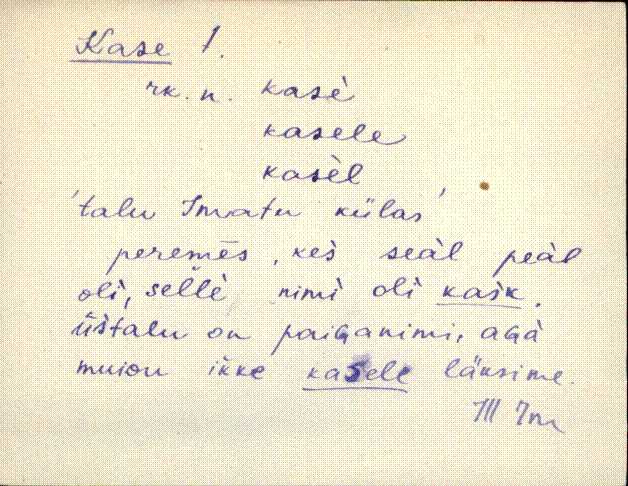 Kase 1.
rk. n. kasè
kasele
kasèl
'talu Imatu külas'
peremēs, kes̀ seàl peàl
oli, sellè nimi oli kas̀k.
üs̀talu on paiGanimi, aGà
muiou ikke kasele läksime.
III Im